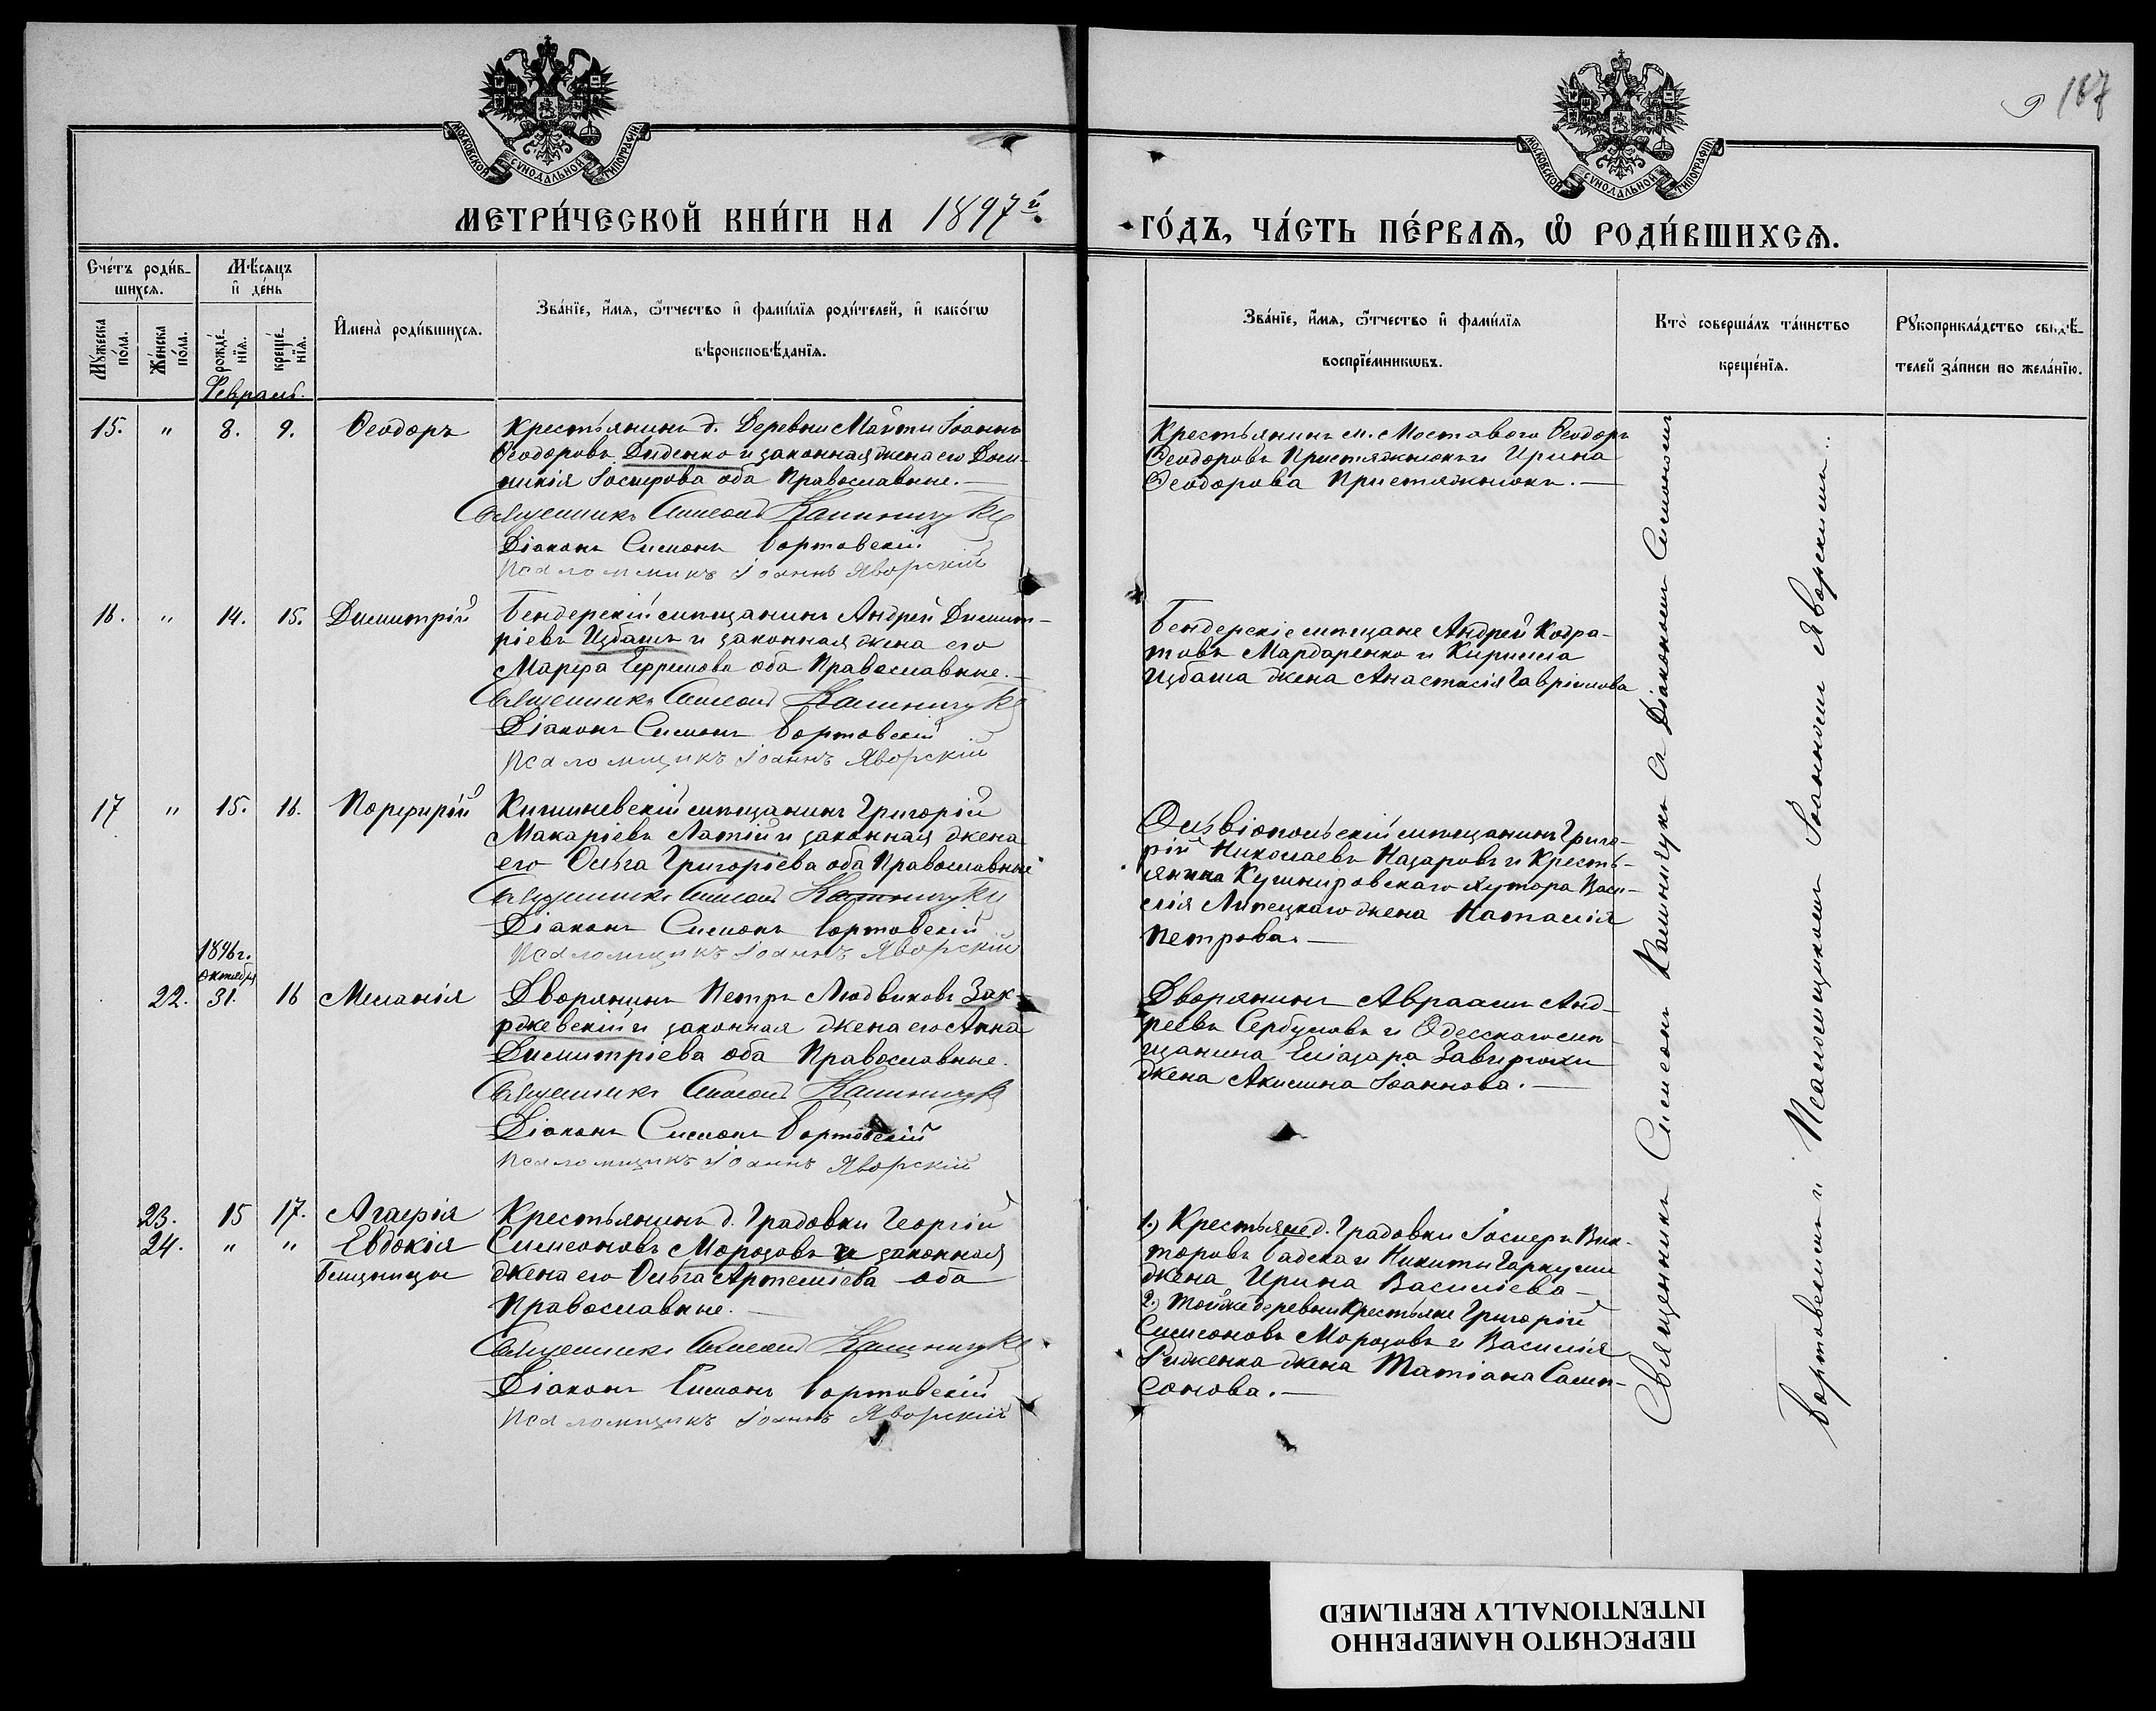 187
МОСКОВСКОЙ СѴНОДАЛЬНОЙ ТИПОГРАФІИ
МОСКОВСКОЙ СѴНОДАЛЬНОЙ ТИПОГРАФІИ
МЕТРИ́ЧЕСКОЙ КНИ́ГИ НА 1897й
ГО́ДЪ, ЧА́СТЬ ПЕ́РВАѦ, Ѡ РОДИ́ВШИХСѦ.
Сче́тъ роди́в-
шихсѧ.
Мꙋ́жеска по́ла.
Же́нска по́ла.
Мѣ́сѧцъ
и де́нь
рожде́-нїѧ.
креще́-нїѧ.
Имена̀ роди́вшихсѧ.
Зва́нїе, и́мѧ, ѻ҆́тчество и фами́лїѧ роди́телей, и како́гѡ
вѣроисповѣ́данїѧ.
Зва́нїе, и́мѧ, ѻ҆́тчество и фами́лїѧ
воспрїе́мникѡвъ.
Кто̀ соверша́лъ та́инство
креще́нїѧ.
Рꙋкоприкла́дство свидѣ́-
телей за́писи по жела́нїю.
Февраль.
15. " 8. 9. Ѳеодоръ
Крестьянинъ д. Деревни Майты Іоаннъ
Ѳеодоровъ Диденко и законная жена его Доми-
никія Іосифова оба Православные.
Священникъ Симеонъ Калинчукъ
Діаконъ Симонъ Бортовскій
Псаломщикъ Іоаннъ Яворскій
Крестьянинъ м. Мостового Ѳеодоръ
Ѳеодоровъ Пристяжнюкъ и Ирина
Ѳеодорова Пристяжнюкъ.
16. " 14. 15. Димитрій
Бендерскій мѣщанинъ Андрей Димит-
ріевъ Цубашъ и законная жена его
Марѳа Ефремова оба Православные.
Священникъ Симеонъ Калинчукъ
Діаконъ Симонъ Бортовскій
Псаломщикъ Іоаннъ Яворскій
Бендерскіе мѣщане Андрей Кодра-
товъ Мардаренко и Кирилла
Цубаша жена Анастасія Гавріилова
17 " 15. 16. Порфирій
Кишиневскій мѣщанинъ Григорій
Макаріевъ Латій и законная жена
его Ольга Григоріева оба Православные
Священникъ Симеонъ Калинчукъ
Діаконъ Симонъ Бортовскій
Псаломщикъ Іоаннъ Яворскій
Ольвіопольскій мѣщанинъ Григо-
рій Николаевъ Назаровъ и Кресть-
янина Кушнировскаго хутора Васи-
лія Липецкаго жена Наталія
Петрова.
1896 г.
октября
22. 31. 16 Меланія
Дворянинъ Петръ Людвиковъ Зак-
ржевскій и законная жена его Анна
Димитріева оба Православные.
Священникъ Симеонъ Калинчукъ
Діаконъ Симонъ Бортовскій
Псаломщикъ Іоаннъ Яворскій
Дворянинъ Авраамъ Анд-
реевъ Сербуловъ и Одесскаго мѣ-
щанина Еліазара Завирюхи
жена Акилина Іоаннова.
23. 15 17. Агафія
24. " " Евдокія
Близницы
Крестьянинъ д. Градовки Георгій
Симеоновъ Морозовъ и законная
жена его Ольга Артеміева оба
Православные.
Священникъ Симеонъ Калинчукъ
Діаконъ Симонъ Бортовскій
Псаломщикъ Іоаннъ Яворскій
1.) Крестьяне д. Градовки Іосифъ Вик-
торовъ Гадска и Никиты Гаркуши
жена Ирина Василіева
2.) Той же деревни Крестьяне Григорій
Симеоновъ Морозовъ и Василія
Рыженка жена Татіана Самп-
сонова.
Священникъ Симеонъ Калинчукъ съ Діакономъ Симономъ
Бортовскимъ и Псаломщикомъ Іоанномъ Яворскимъ.
ПЕРЕСНЯТО НАМЕРЕННО
INTENTIONALLY REFILMED